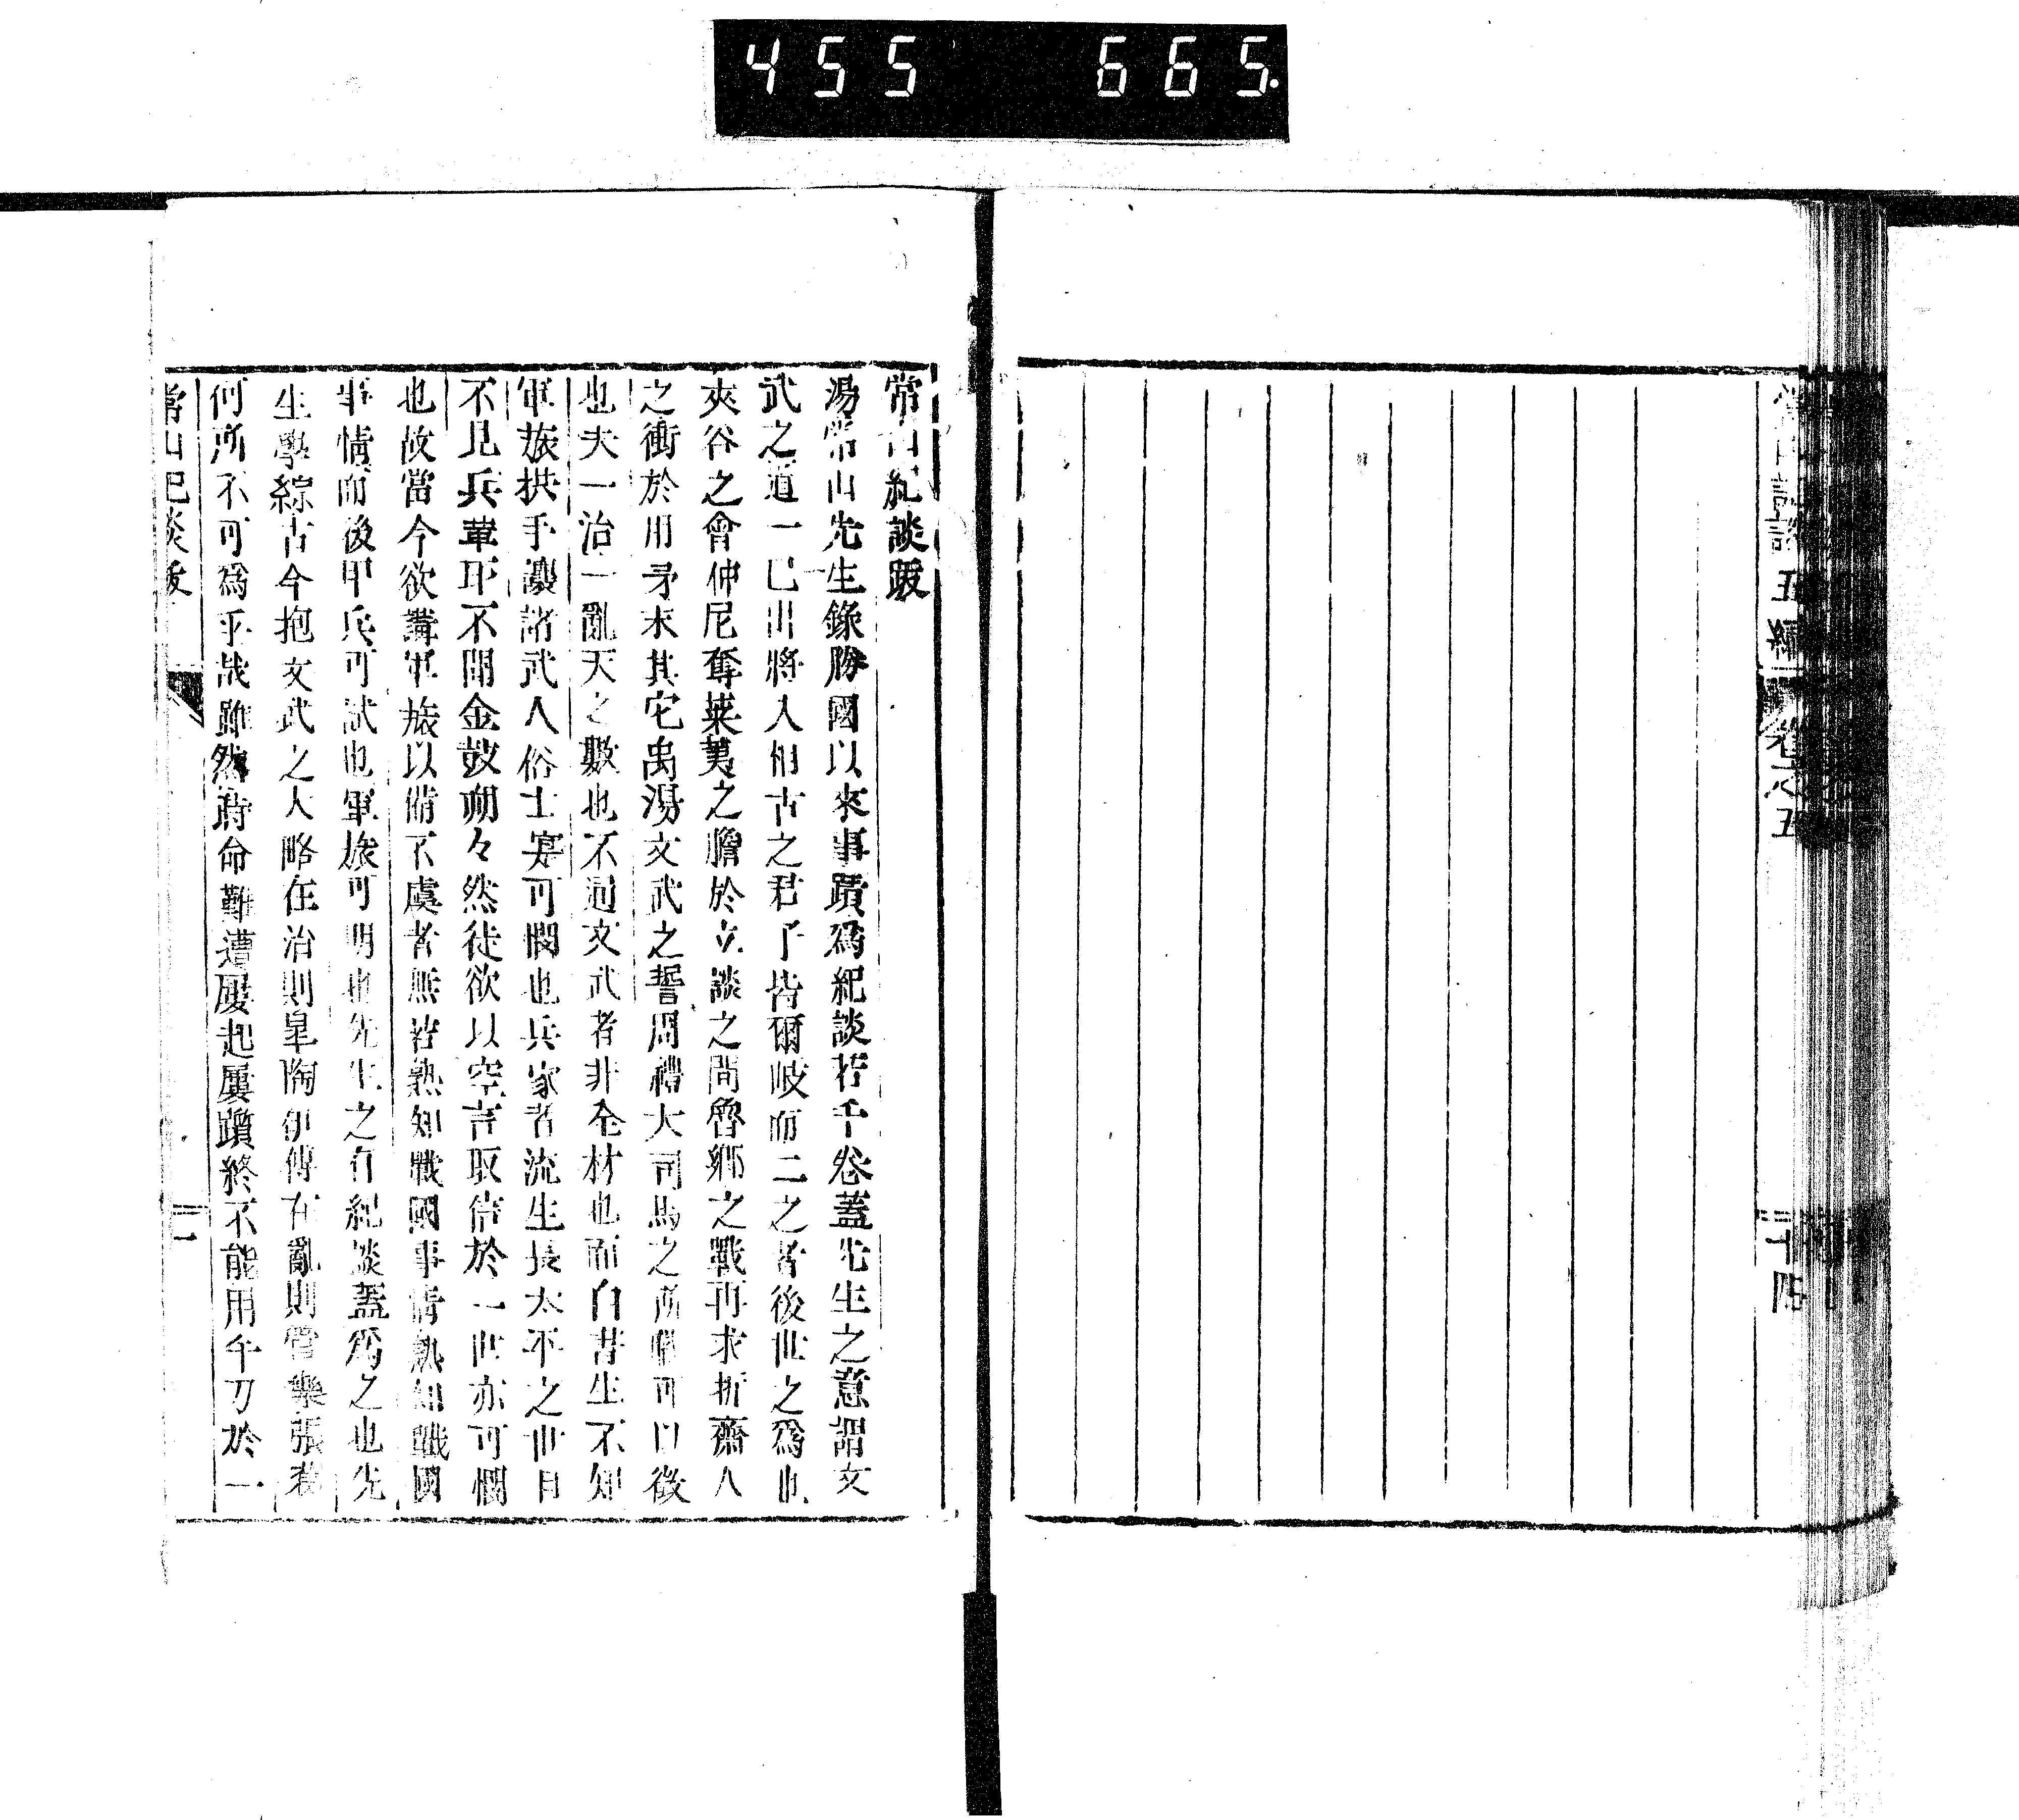 455 665
常山紀談 五編 卷之五 十四
常山紀談跋
湯常山先生錄勝國以來事蹟爲紀談若干卷蓋先生之意謂文
武之道一已出將入相古之君子皆爾岐而二之者後世之爲也
夾谷之會仲尼奪萊夷之膽於立談之間魯鄉之戰冉求折齊人
之衝於用矛末其它禹湯文武之誓周禮大司馬之所職可以徵
也夫一治一亂天之數也不通文武者非全材也而白書生不知
軍旅拱手讓諸武人俗士寔可憫也兵家者流生長太平之世目
不見兵革耳不聞金鼓翊々然徒欲以空言取信於一世亦可憫
也故當今欲講軍旅以備不虞者無若熟知戰國事情熟知戰國
事情而後甲兵可試也軍旅可明也先生之有紀談蓋爲之也先
生學綜古今抱文武之大略在治則皐陶伊傅在亂則管樂張葛
何所不可爲乎哉雖然時命難遭屢起屢躓終不能用牛刀於一
常山紀談跋 一